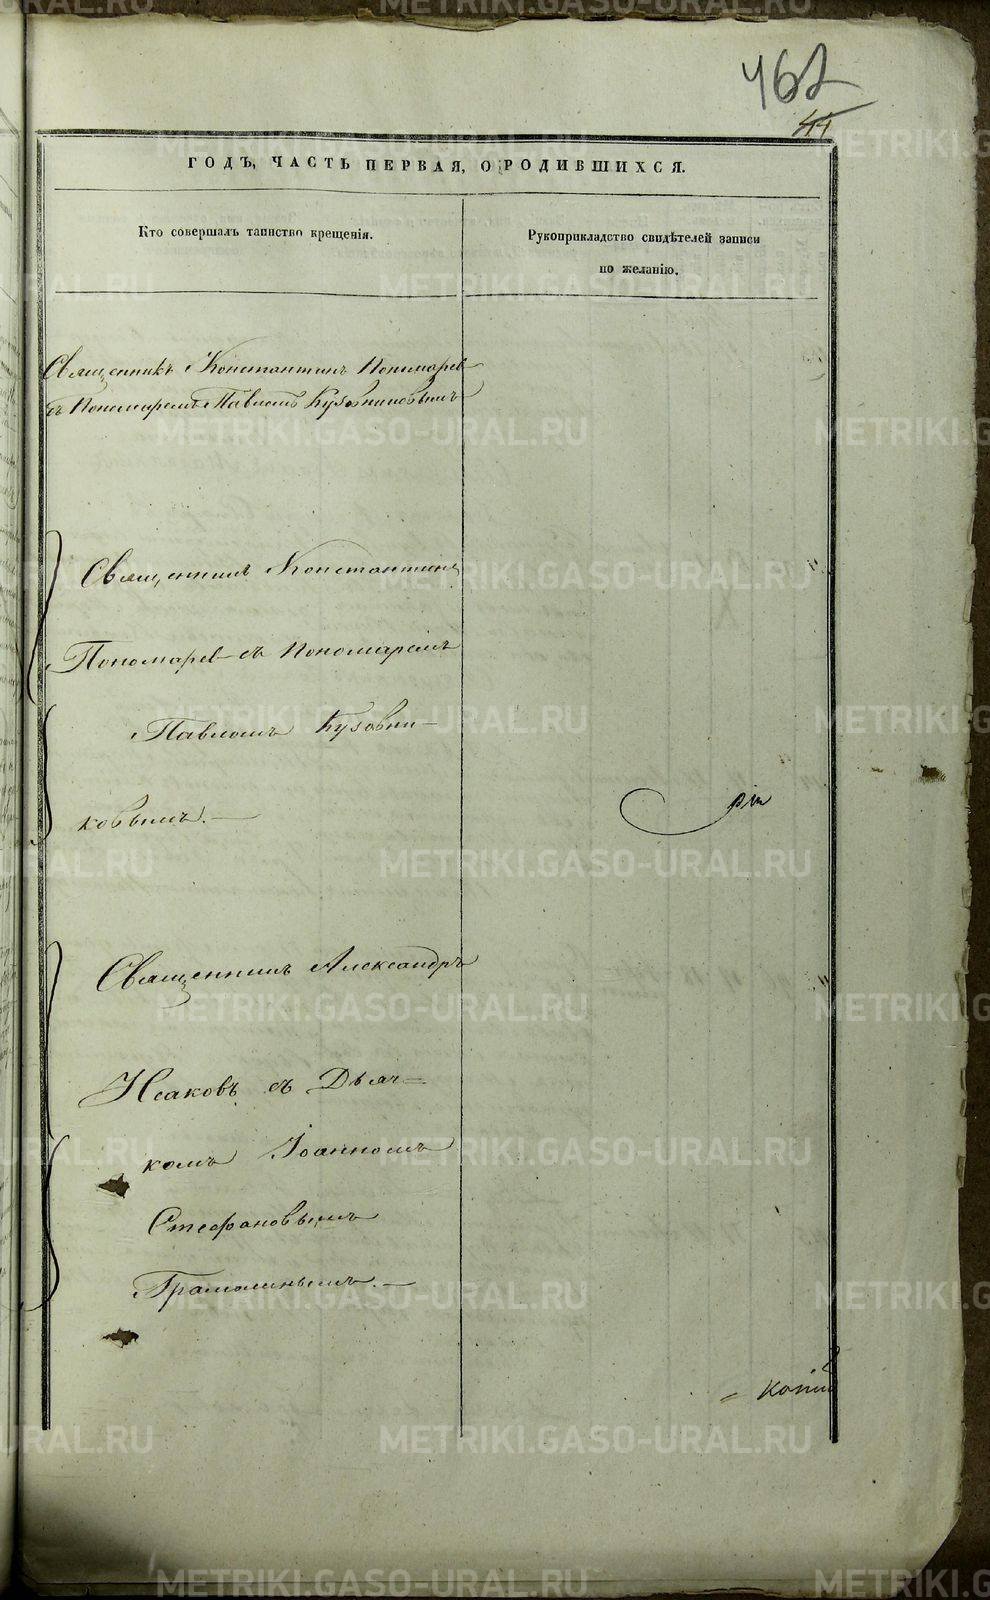 462
41
ГОДЪ, ЧАСТЬ ПЕРВАЯ, О РОДИВШИХСЯ.
Кто совершалъ таинство крещенія.
Рукоприкладство свидѣтелей записи
по желанію.
Священникъ Константинъ Пономарев
съ Пономаремъ Павломъ Кузовниковымъ
Священникъ Константинъ
Пономарев съ Пономаремъ
Павломъ Кузовни-
ковымъ.
Священникъ Александръ
Исаковъ съ Дьяч-
комъ Іоанномъ
Стефановымъ
Грамолинымъ.
METRIKI.GASO-URAL.RU